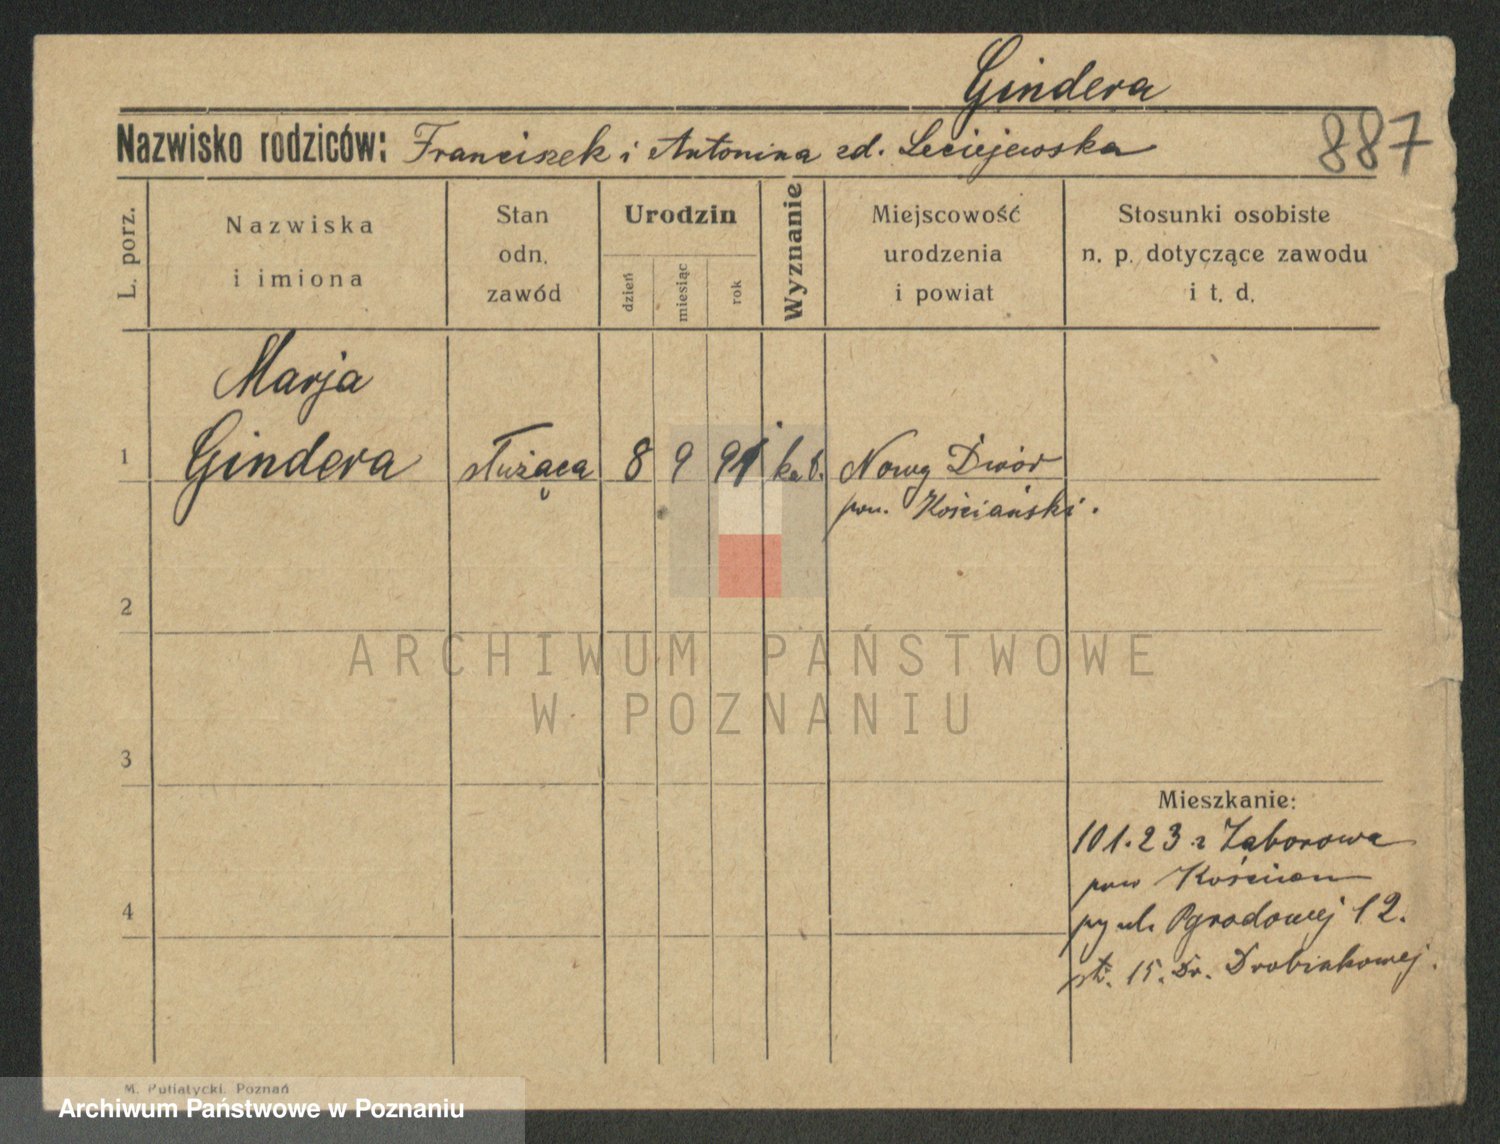 Gindera
Nazwisko rodziców: Franciszek i Antonina zd. Leciejewska
887
L. porz.
Nazwiska
i imiona
Stan
odn.
zawód
Urodzin
dzień
miesiąc
rok
Wyznanie
Miejscowość
urodzenia
i powiat
Stosunki osobiste
n. p. dotyczące zawodu
i t. d.
Marja
1 Gindera służąca 8 9 91 kat. Nowy Dwór
pow. Kościański.
2
ARCHIWUM PAŃSTWOWE
W POZNANIU
3
Mieszkanie:
10 1. 23 z Zaborowa
pow Kościan
4
Ogrodowej 12.
15. Dr. Drobiakowej.
M. Putiatycki. Poznań
Archiwum Państwowe w Poznaniu